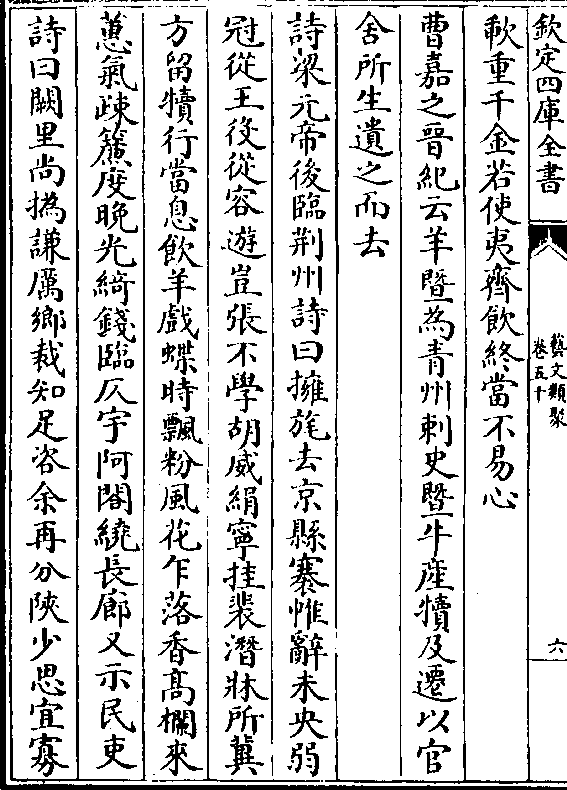 欽定四庫全書
藝文類聚
卷五十
六
軟重千金若使夷齊飲終當不易心
曹嘉之晉紀云羊曁為青州刺史曁牛産犢及遷以官
舍所生遺之而去
詩梁元帝後臨荆州詩曰擁旄去京縣褰帷辭未央弱
冠從王役從容遊豈張不學胡威絹寧挂裴潛牀所冀
方留犢行當息飲羊戲蝶時飄粉風花乍落香髙欄來
蕙氣疎簾度晚光綺錢臨仄宇阿閣繞長廊又示民吏
詩曰闕里尚撝謙厲鄉裁知足咨余再分陜少思宜寡